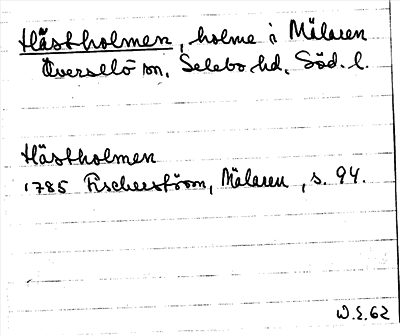 Hästholmen, holme i Mälaren
Överselö sn, Selebo hd, Söd. l.
Hästholmen
1785 Fischerström, Mälaren, s. 94.
W.E.62